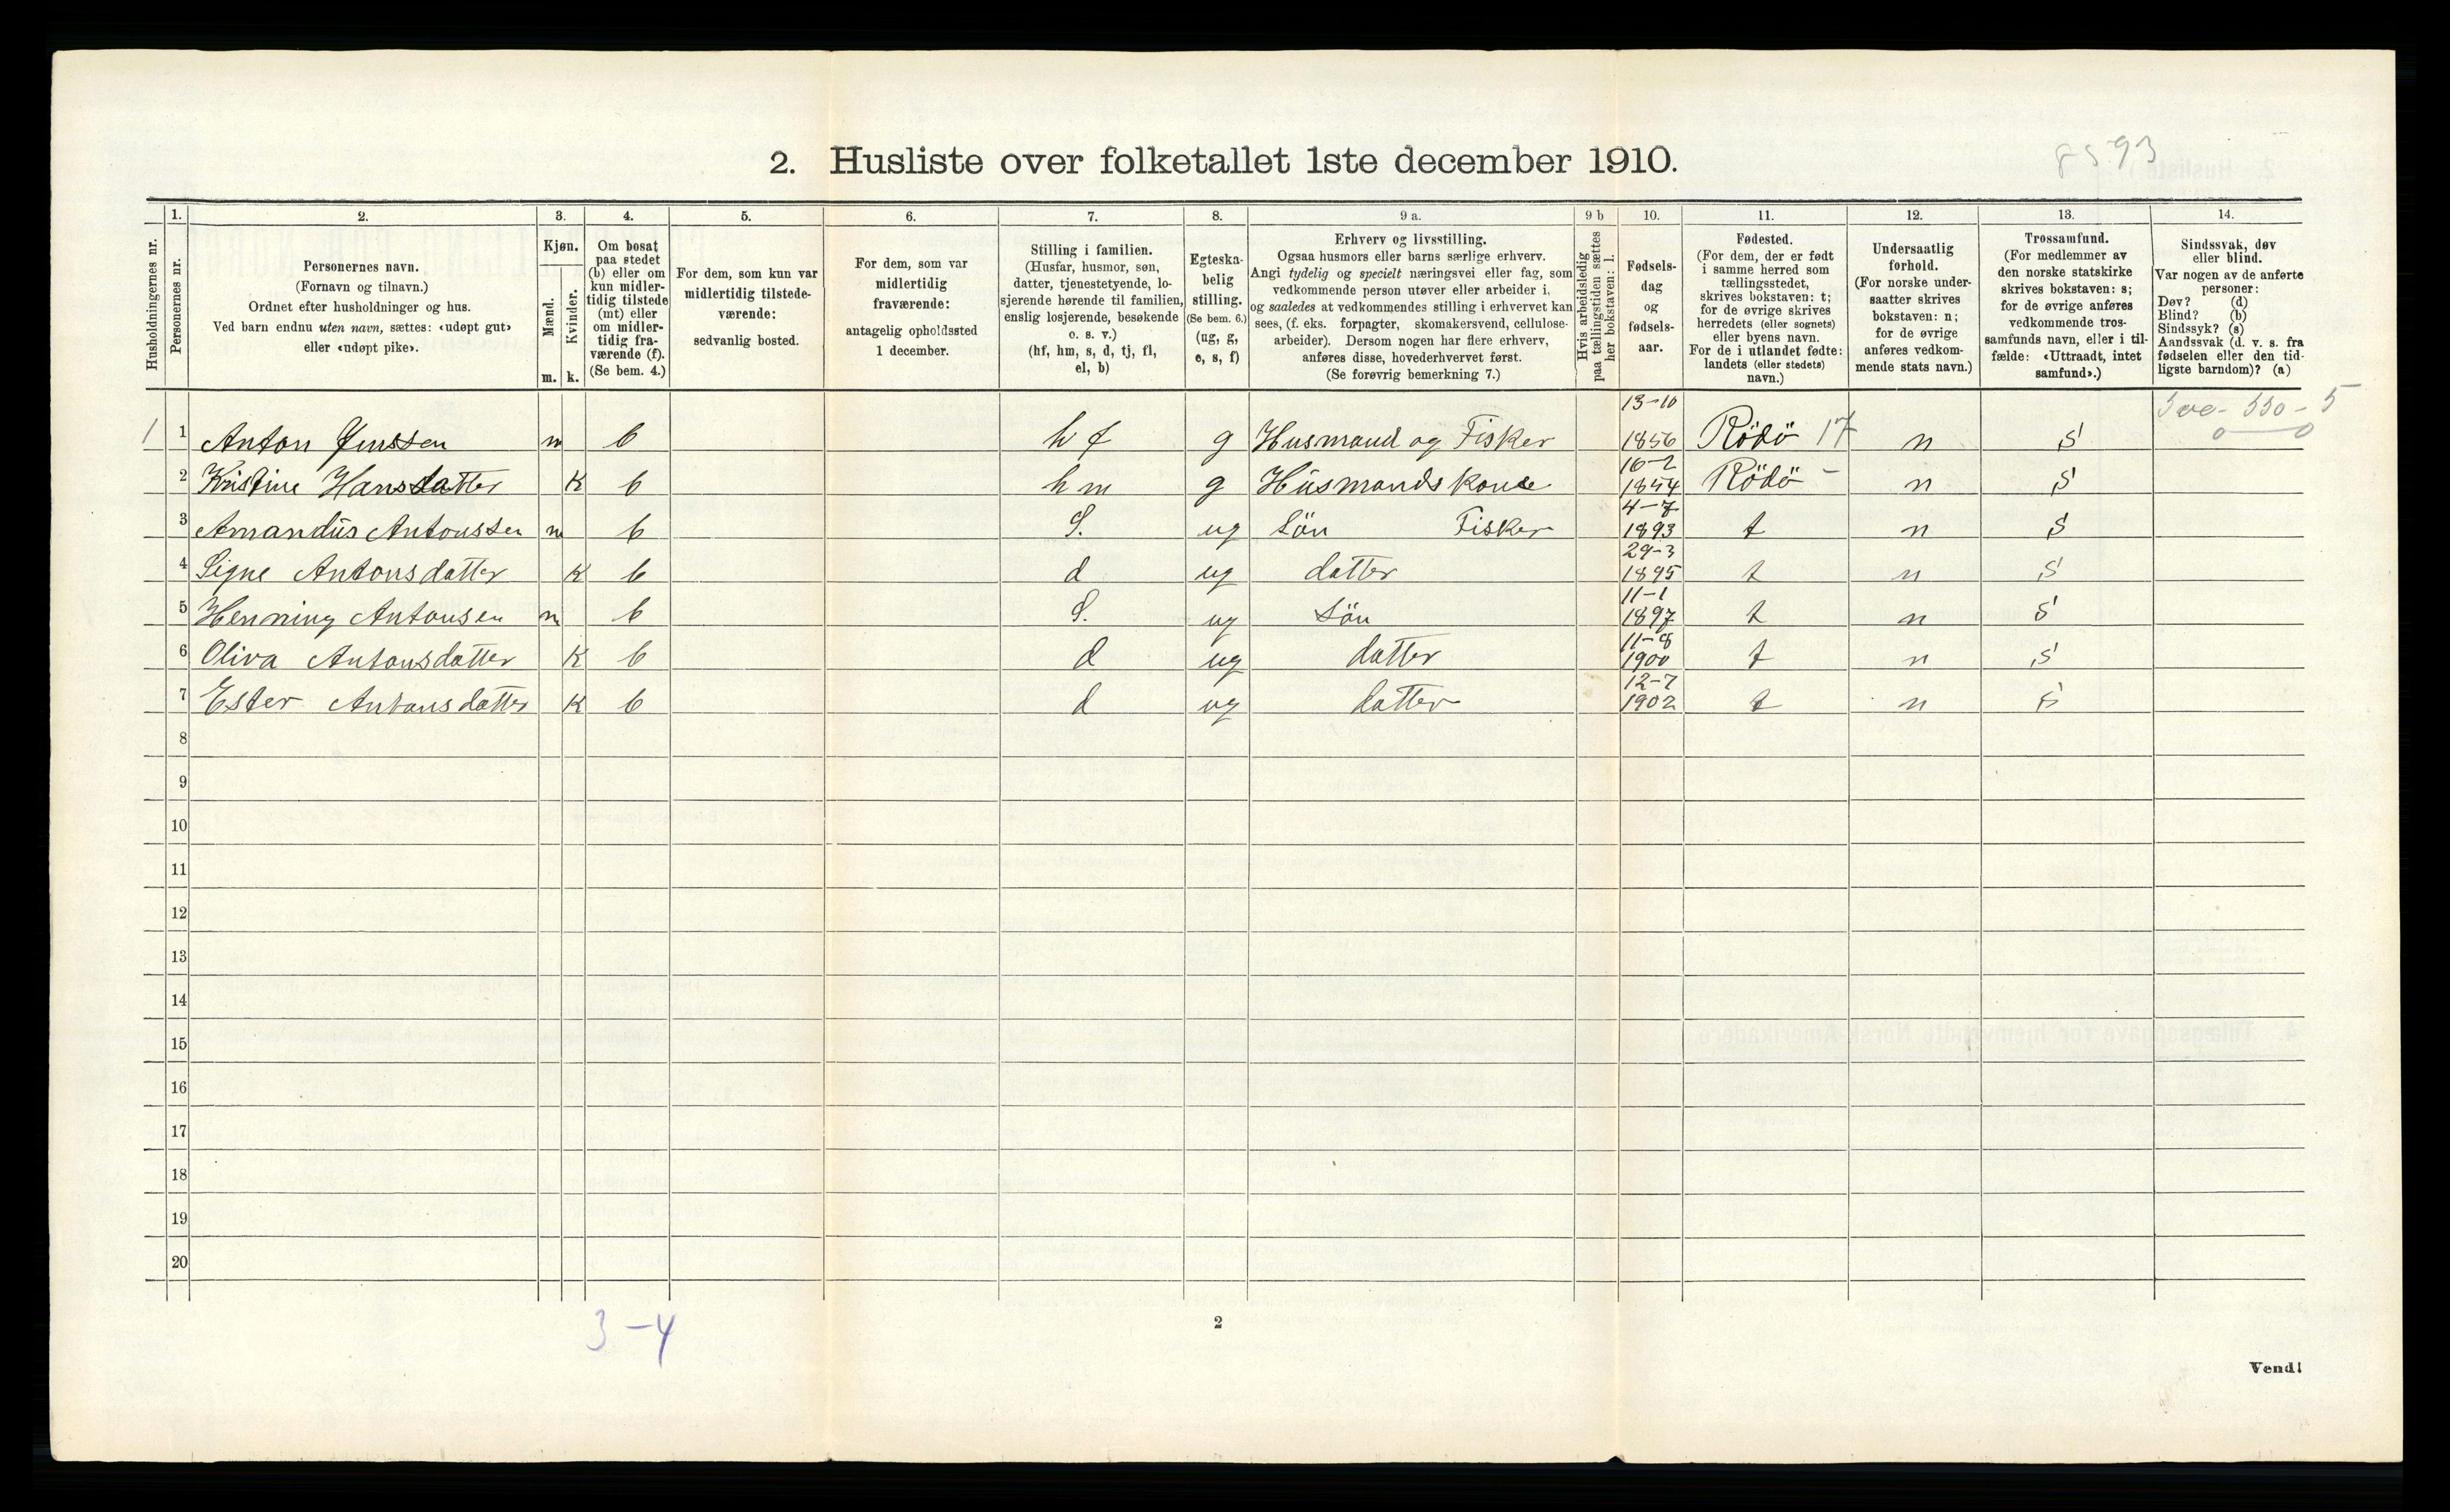 8593
2. Husliste over folketallet 1ste december 1910.
Husholdningernes nr.
1.
Personernes nr.
2.
Personernes navn.
(Fornavn og tilnavn.)
Ordnet efter husholdninger og hus.
Ved barn endnu uten navn, sættes: «udøpt gut»
eller «udøpt pike».
3.
Kjøn.
Mænd.
Kvinder.
m. k.
4.
Om bosat
paa stedet
(b) eller om
kun midler-
tidig tilstede
(mt) eller
om midler-
tidig fra-
værende (f).
(Se bem. 4.)
5.
For dem, som kun var
midlertidig tilstede-
værende:
sedvanlig bosted.
6.
For dem, som var
midlertidig
fraværende:
antagelig opholdssted
1 december.
7.
Stilling i familien.
(Husfar, husmor, søn,
datter, tjenestetyende, lo-
sjerende hørende til familien,
enslig losjerende, besøkende
o. s. v.)
(hf, hm, s, d, tj, fl,
el, b)
8.
Egteska-
belig
stilling.
(Se bem. 6.)
(ug, g,
e, s, f)
9 a.
Erhverv og livsstilling.
Ogsaa husmors eller barns særlige erhverv.
Angi tydelig og specielt næringsvei eller fag, som
vedkommende person utøver eller arbeider i,
og saaledes at vedkommendes stilling i erhvervet kan
sees, (f. eks. forpagter, skomakersvend, cellulose-
arbeider). Dersom nogen har flere erhverv,
anføres disse, hovederhvervet først.
(Se forøvrig bemerkning 7.)
9 b
Hvis arbeidsledig
paa tællingstiden sættes
her bokstaven: l.
10.
Fødsels-
dag
og
fødsels-
aar.
11.
Fødested.
(For dem, der er født
i samme herred som
tællingsstedet,
skrives bokstaven: t;
for de øvrige skrives
herredets (eller sognets)
eller byens navn.
For de i utlandet fødte:
landets (eller stedets)
navn.)
12.
Undersaatlig
forhold.
(For norske under-
saatter skrives
bokstaven: n;
for de øvrige
anføres vedkom-
mende stats navn.)
13.
Trossamfund.
(For medlemmer av
den norske statskirke
skrives bokstaven: s;
for de øvrige anføres
vedkommende tros-
samfunds navn, eller i til-
fælde: «Uttraadt, intet
samfund».)
14.
Sindssvak, døv
eller blind.
Var nogen av de anførte
personer:
Døv? (d)
Blind? (b)
Sindssyk? (s)
Aandssvak (d. v. s. fra
fødselen eller den tid-
ligste barndom)? (a)
13-10
1 1 Anton Jenssen m b hf g Husmand og Fisker 1856 Rödö 17 n S
16-2
2 Kristine Hansdatter K b hm g Husmandskone 1854 Rödö - n S
4-7
3 Amandus Antonssen m b S. ug Sön Fisker 1893 t n S
29-3
4 Signe Antonsdatter K b d ug datter 1895 t n S
11-1
5 Henning Antonsen m b S. ug Sön 1897 t n S
11-8
6 Oliva Antonsdatter K b d ug datter 1900 t n S
12-7
7 Ester Antonsdatter K b d ug datter 1902 t n S
8
9
10
11
12
13
14
15
16
17
18
19
20
3-4
2
Vend!